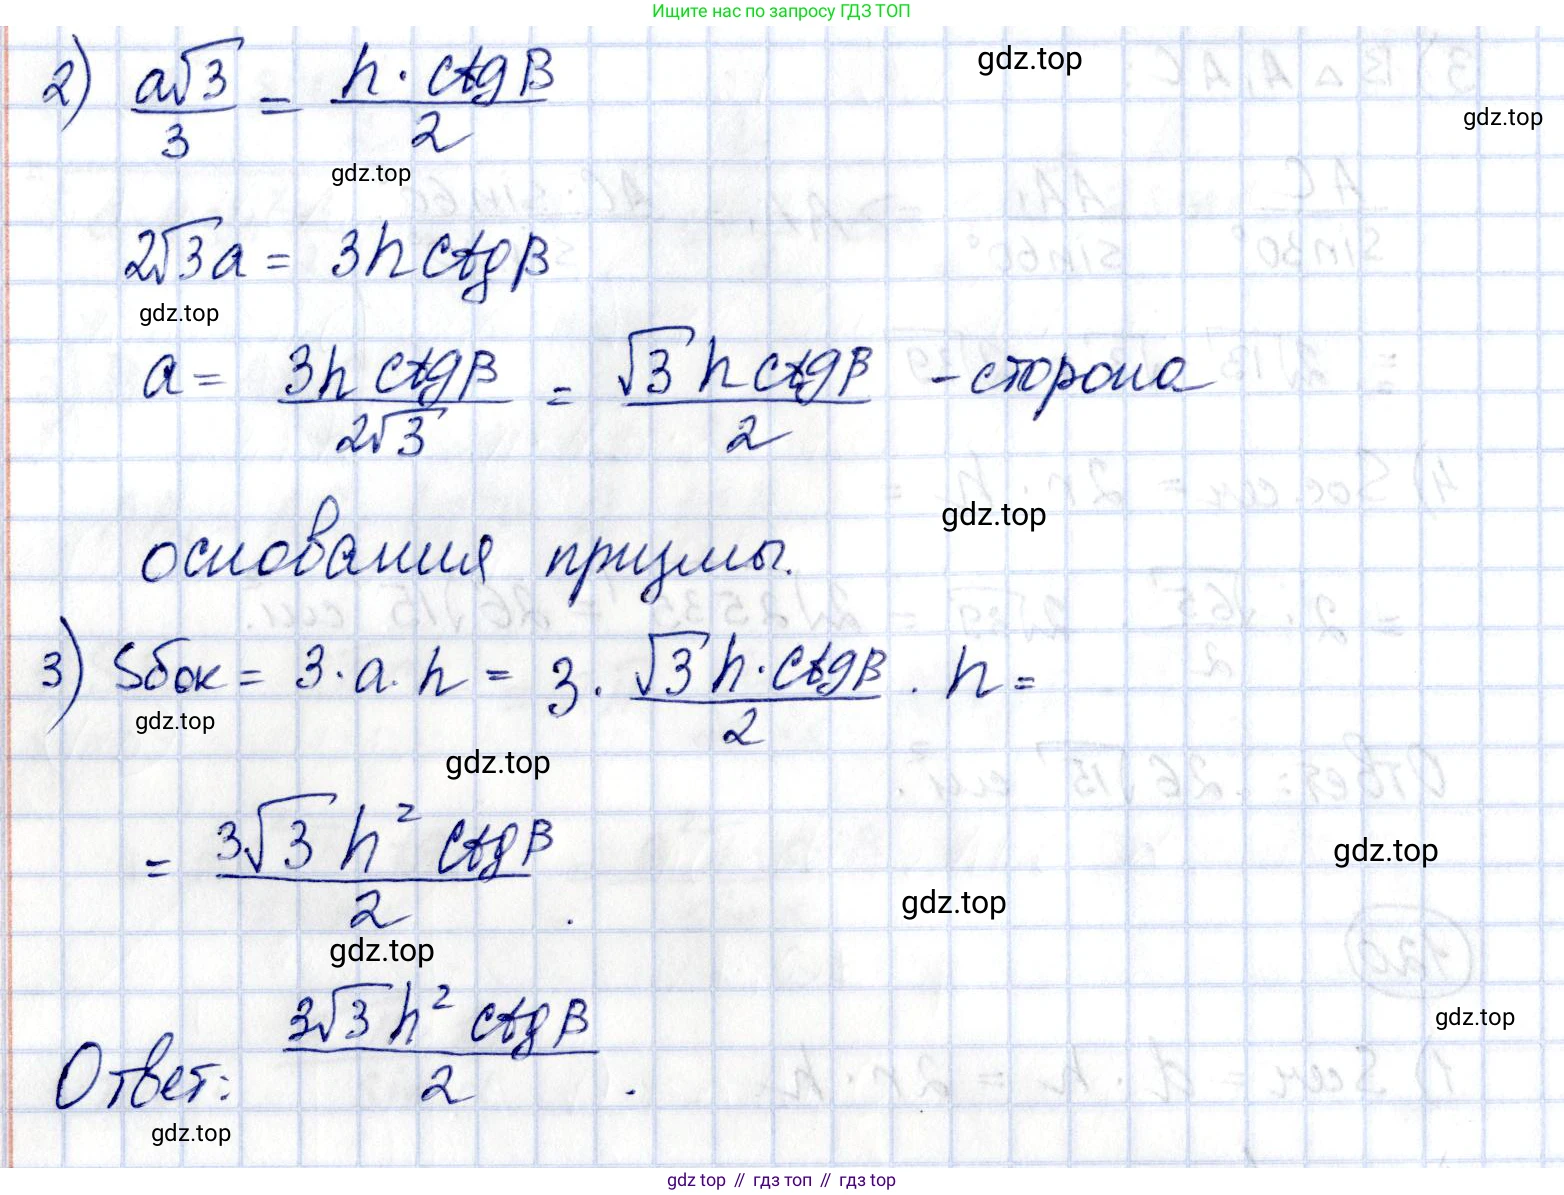 Ищите нас по запросу ГДЗ ТОП
2) a√3/3 = h · ctgβ/2
gdz.top
gdz.top
gdz.top
2√3a = 3h ctgβ
gdz.top
a = 3h ctgβ/2√3 = √3 h ctgβ/2 – сторона
gdz.top
основания призмы.
3) Sбок = 3·a·h = 3 · √3 h · ctgβ/2 · h =
gdz.top
gdz.top
= 3√3 h² ctgβ/2.
gdz.top
gdz.top
gdz.top
Ответ: 3√3 h² ctgβ/2.
gdz.top
gdz.top
gdz.top // гдз топ // гдз.top